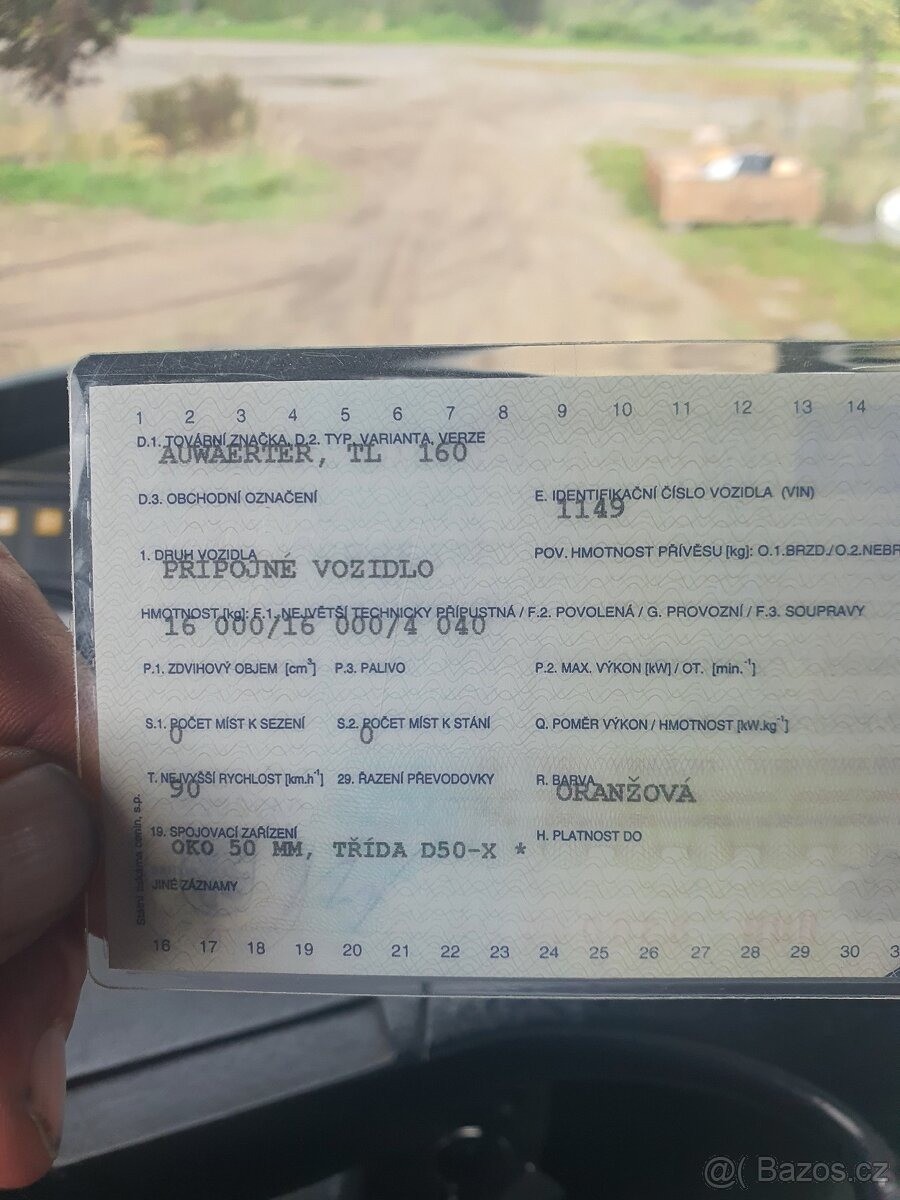 1 2 3 4 5 6 7 8 9 10 11 12 13 14
D.1. TOVÁRNÍ ZNAČKA, D.2. TYP, VARIANTA, VERZE
AUWAERTER, TL 160
D.3. OBCHODNÍ OZNAČENÍ
E. IDENTIFIKAČNÍ ČÍSLO VOZIDLA (VIN)
1149
1. DRUH VOZIDLA
PŘÍPOJNÉ VOZIDLO
POV. HMOTNOST PŘÍVĚSU [kg]: O.1.BRZD./O.2.NEBR
HMOTNOST [kg]: F.1. NEJVĚTŠÍ TECHNICKY PŘÍPUSTNÁ / F.2. POVOLENÁ / G. PROVOZNÍ / F.3. SOUPRAVY
16 000/16 000/4 040
P.1. ZDVIHOVÝ OBJEM [cm³] P.3. PALIVO
P.2. MAX. VÝKON [kW] / OT. [min.⁻¹]
S.1. POČET MÍST K SEZENÍ S.2. POČET MÍST K STÁNÍ
0 0
Q. POMĚR VÝKON / HMOTNOST [kW.kg⁻¹]
T. NEJVYŠŠÍ RYCHLOST [km.h⁻¹] 29. ŘAZENÍ PŘEVODOVKY
90
R. BARVA
ORANŽOVÁ
19. SPOJOVACÍ ZAŘÍZENÍ
OKO 50 MM, TŘÍDA D50-X *
H. PLATNOST DO
JINÉ ZÁZNAMY
Státní tiskárna cenin, s.p.
16 17 18 19 20 21 22 23 24 25 26 27 28 29 30 3
@( Bazos.cz